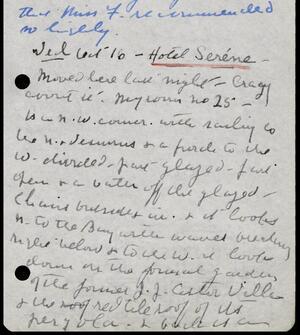 that Miss F. recommended
so highly.
Wed Oct 16 - Hotel Seréne -
Moved here last night - Crazy
about it. My room no 25 -
is a n.w. corner. with railing to
the n. & a porch to the
w. divided - part glazed - part
open & a off the glazed -
Chairs & in. & it looks
n. to the Bay with waves
right below & to the w. it looks
down on the formal garden
of the former J. J. Villa
& the red tile roof of its
pergola. &